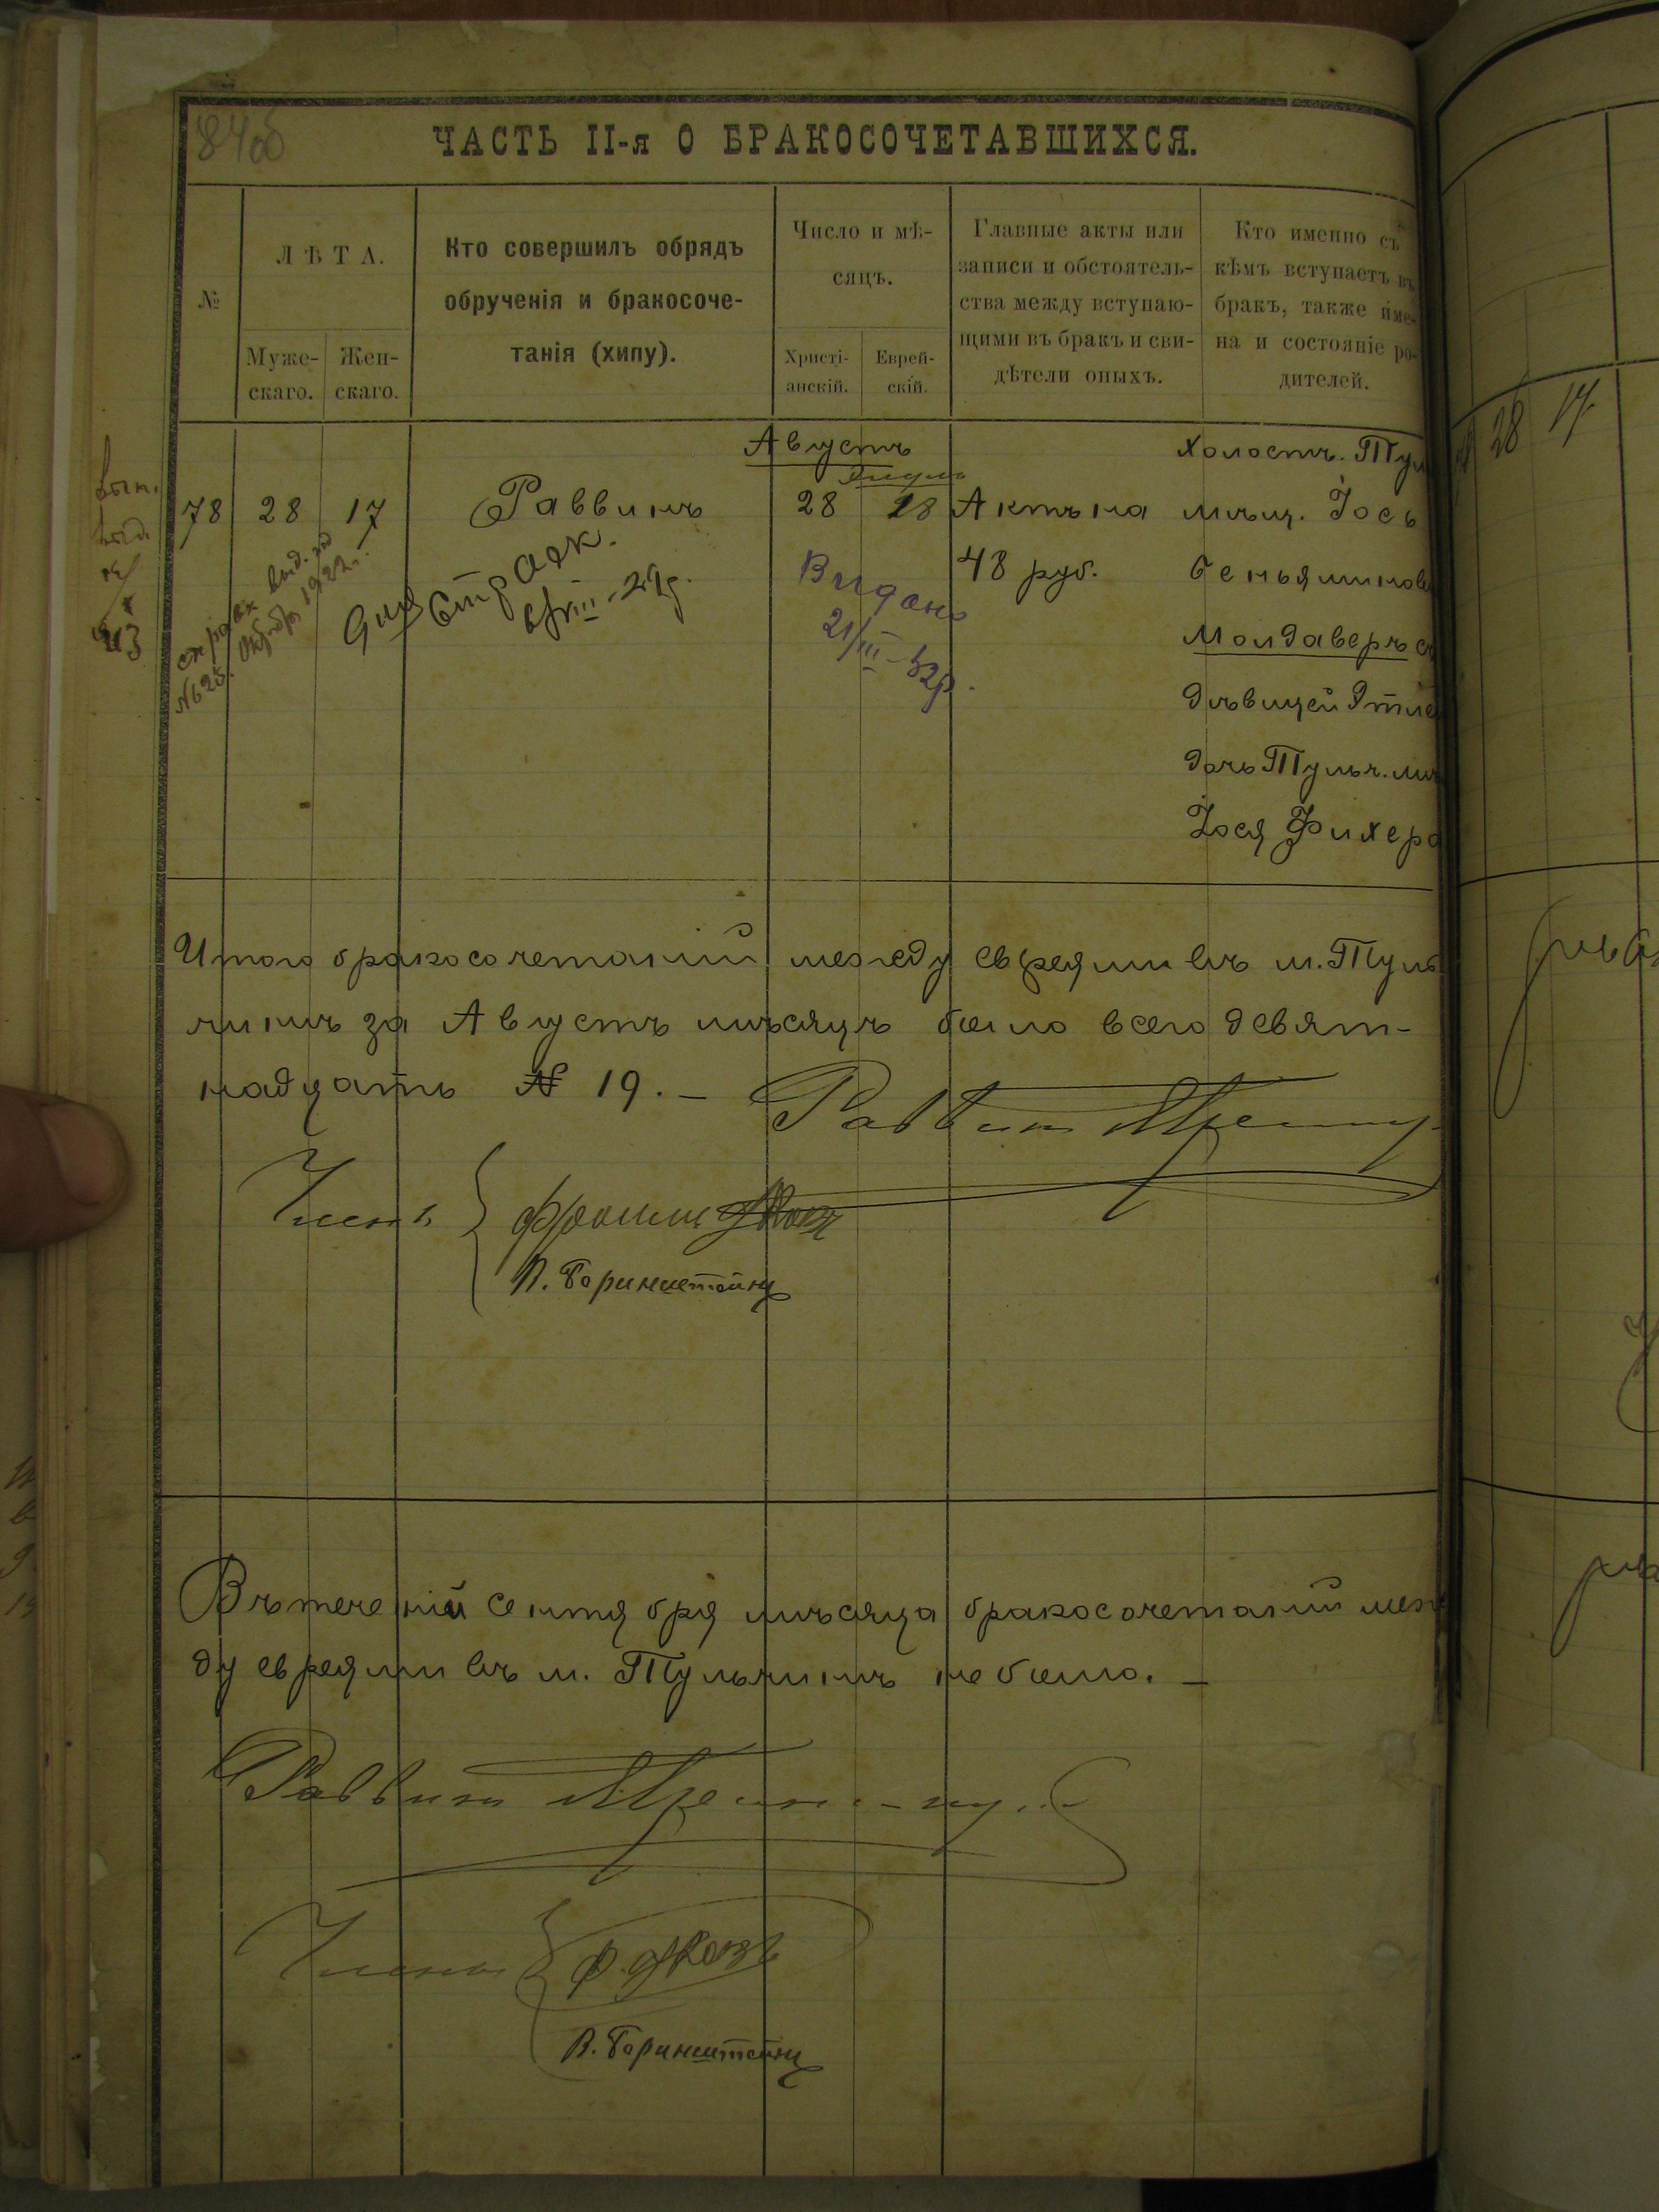 84об
ЧАСТЬ II-я О БРАКОСОЧЕТАВШИХСЯ.
№
ЛѢТА.
Муже-
скаго.
Жен-
скаго.
Кто совершилъ обрядъ
обрученія и бракосоче-
танія (хипу).
Число и мѣ-
сяцъ.
Христі-
анскій.
Еврей-
скій.
Главные акты или
записи и обстоятель-
ства между вступаю-
щими въ бракъ и сви-
дѣтели оныхъ.
Кто именно съ
кѣмъ вступаетъ въ
бракъ, также име-
на и состояніе ро-
дителей.
Августъ
78 28 17 Раввинъ 28 18 Актъ на
48 руб.
Холостъ. Тул
мѣщ. Іось
Беньяминов
Молдаверъ с
дѣвицей Этле
дочь Тульч. мѣ
Іося Фихера
Видано
21/III-32р.
Для
VIII-29р.
справк выд.
№625. Октября 1922г.
Итого бракосочетаній между евреями въ м. Туль
чинѣ за Августъ мѣсяцъ было всего девят-
надцать № 19. –
Раввинъ
Члены
В. Боринштейнъ
Въ теченіи Сентября мѣсяца бракосочетаній меж
ду евреями въ м. Тульчинѣ не было. –
Раввинъ
Члены
В. Боринштейнъ
28 17